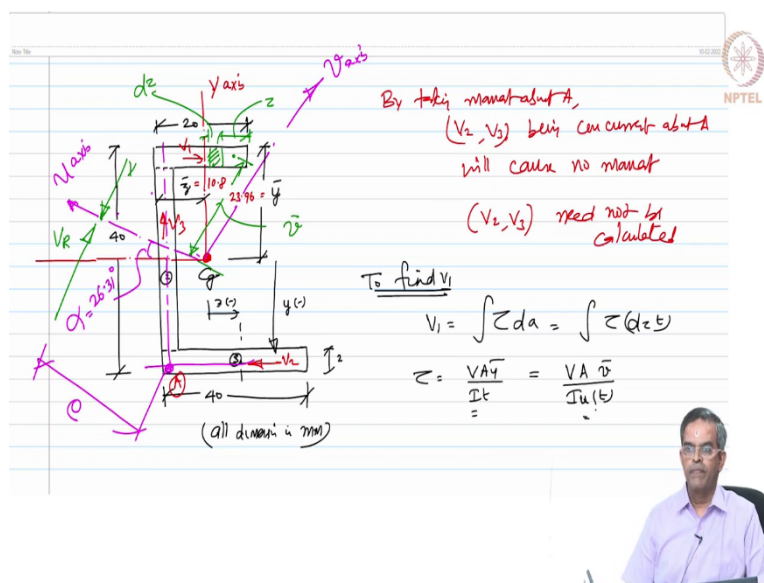 Now Title
10-02-2022
NPTEL
dz
y axis
z
V axis
20
U axis
V1
z̄ = 10.8
23.96 = ȳ
V3
VR
40
v̄
α = 26.31°
Cg
z(-)
y(-)
V2
2
A
e
40
(all dimension in mm)
By taking moment about A,
(V2, V3) being concurrent about A
will cause no moment
(V2, V3) need not be
calculated
To find V1
V1 = ∫ τ da = ∫ τ (dz t)
τ = VAȳ / It = VA v̄ / Iu(t)